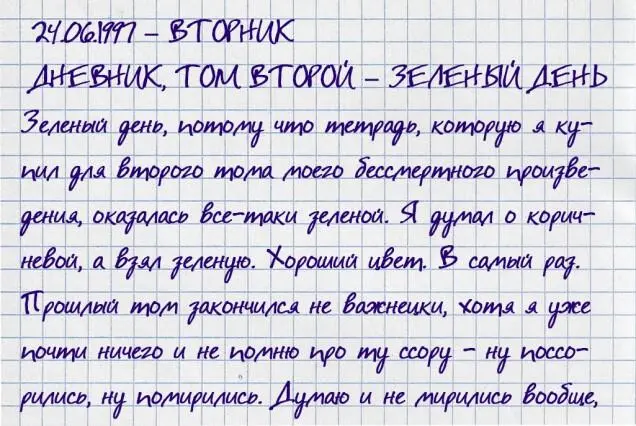 24.06.1997 – ВТОРНИК
ДНЕВНИК, ТОМ ВТОРОЙ – ЗЕЛЕНЫЙ ДЕНЬ
Зеленый день, потому что тетрадь, которую я ку-
пил для второго тома моего бессмертного произве-
дения, оказалась все-таки зеленой. Я думал о корич-
невой, а взял зеленую. Хороший цвет. В самый раз.
Прошлый том закончился не важнецки, хотя я уже
почти ничего и не помню про ту ссору – ну поссо-
рились, ну помирились. Думаю и не мирились вообще,